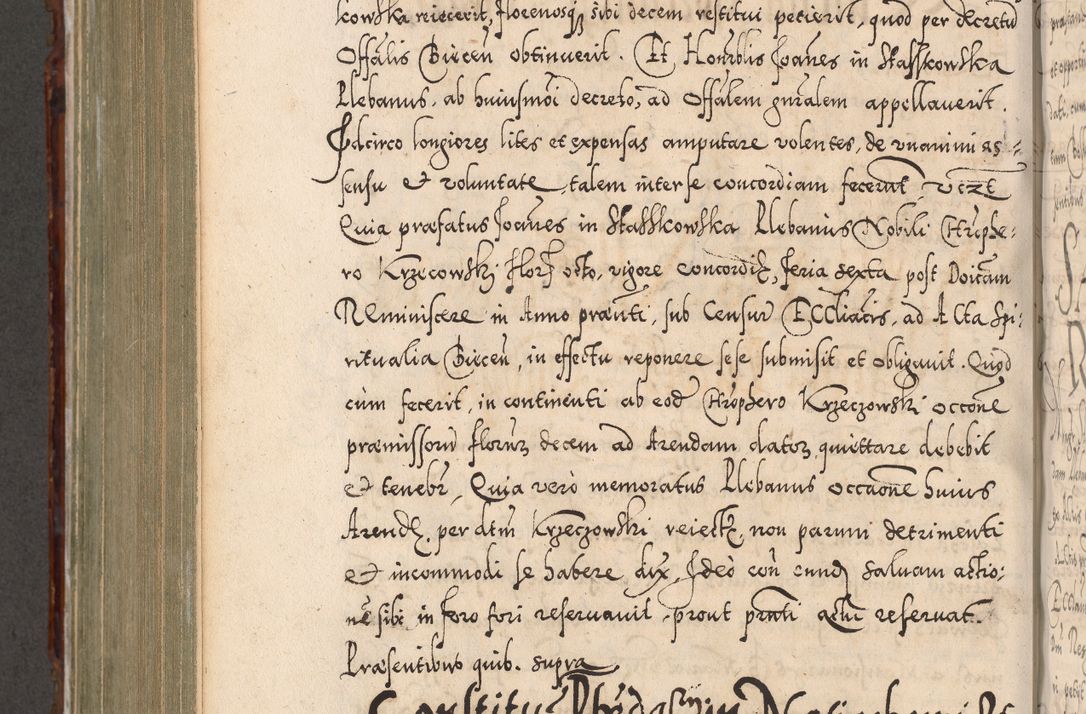 kowska reiecerit, florenosq3 sibi decem restitui petierit, quod per decretū
Offālis Biecen̄ obtinuerit. Et Honrblis Joānes in Staszkowska
Plebanus, ab huiusmōi decreto, ad Offālem gnralem appellauerit.
Idcirco longiores lites et expensas amputare volentes, de vnanimi as=
sensu et voluntate, talem inter se concordiam fecerūt, vczt
Quia præfatus Joānes in Staszkowska Plebanus Nobili Chrophe:
ro Krzeczowski flor octo, vigore concordiæ, feria sexta post Doīcam
Reminiscere in Anno præn̄ti, sub Censur Eccliācis, ad Acta Spi:
ritualia Biecen̄, in effectu reponere sese submisit et obligauit. Quod
cùm fecerit, in continenti ab eod Chrophero Krzeczowski occōne
præmissorū florenorū decem ad Arendam dator quiettare debebit
et tenebr, Quia verò memoratus Plebanus occaōne huius
Arendæ, per dtm̄ Krzeczowski reiectæ, non parum detrimenti
et incommodi se habere dix, Ideò con cund saluam actio:
nē sibi in foro fori reseruauit, prout prn̄ti actu reseruat.
Præsentibus quib. supra